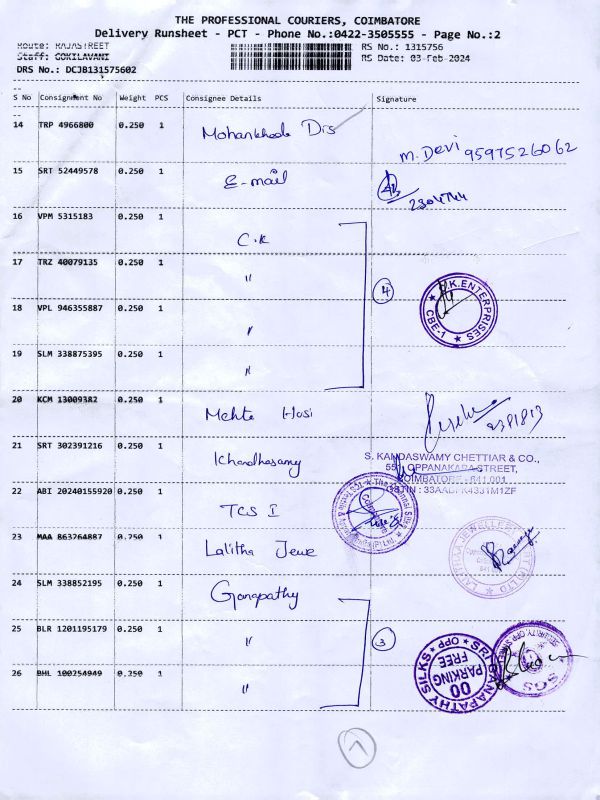 THE PROFESSIONAL COURIERS, COIMBATORE
Delivery Runsheet - PCT - Phone No.:0422-3505555 - Page No.:2
Route: RAJASTREET
Staff: GOKILAVANI
DRS No.: DCJB131575602
RS No.: 1315756
RS Date: 03-Feb-2024
S No Consignment No Weight PCS Consignee Details Signature
14 TRP 4966800 0.250 1 Dis
M. Devi 9597526062
15 SRT 52449578 0.250 1 E-mail
2304744
16 VPM 5315183 0.250 1 C.K
17 TRZ 40079135 0.250 1 "
4
K.ENTERPRISES
CBE-1
18 VPL 946355887 0.250 1 "
19 SLM 338875395 0.250 1 "
20 KCM 13009382 0.250 1 Mehta Hosi
2381813
21 SRT 302391216 0.250 1 Khandhasamy
S. KANDASWAMY CHETTIAR & CO.,
OPPANAKARA STREET,
COIMBATORE - 641 001
22 ABI 20240155920 0.250 1 TCS I
23 MAA 863264887 0.250 1 Lalitha Jewe
24 SLM 338852195 0.250 1 Ganapathy
25 BLR 1201195179 0.250 1 "
3
SRI GANAPATHY SILKS
OPP
00
PARKING
FREE
SGS
26 BHL 100254949 0.250 1 "